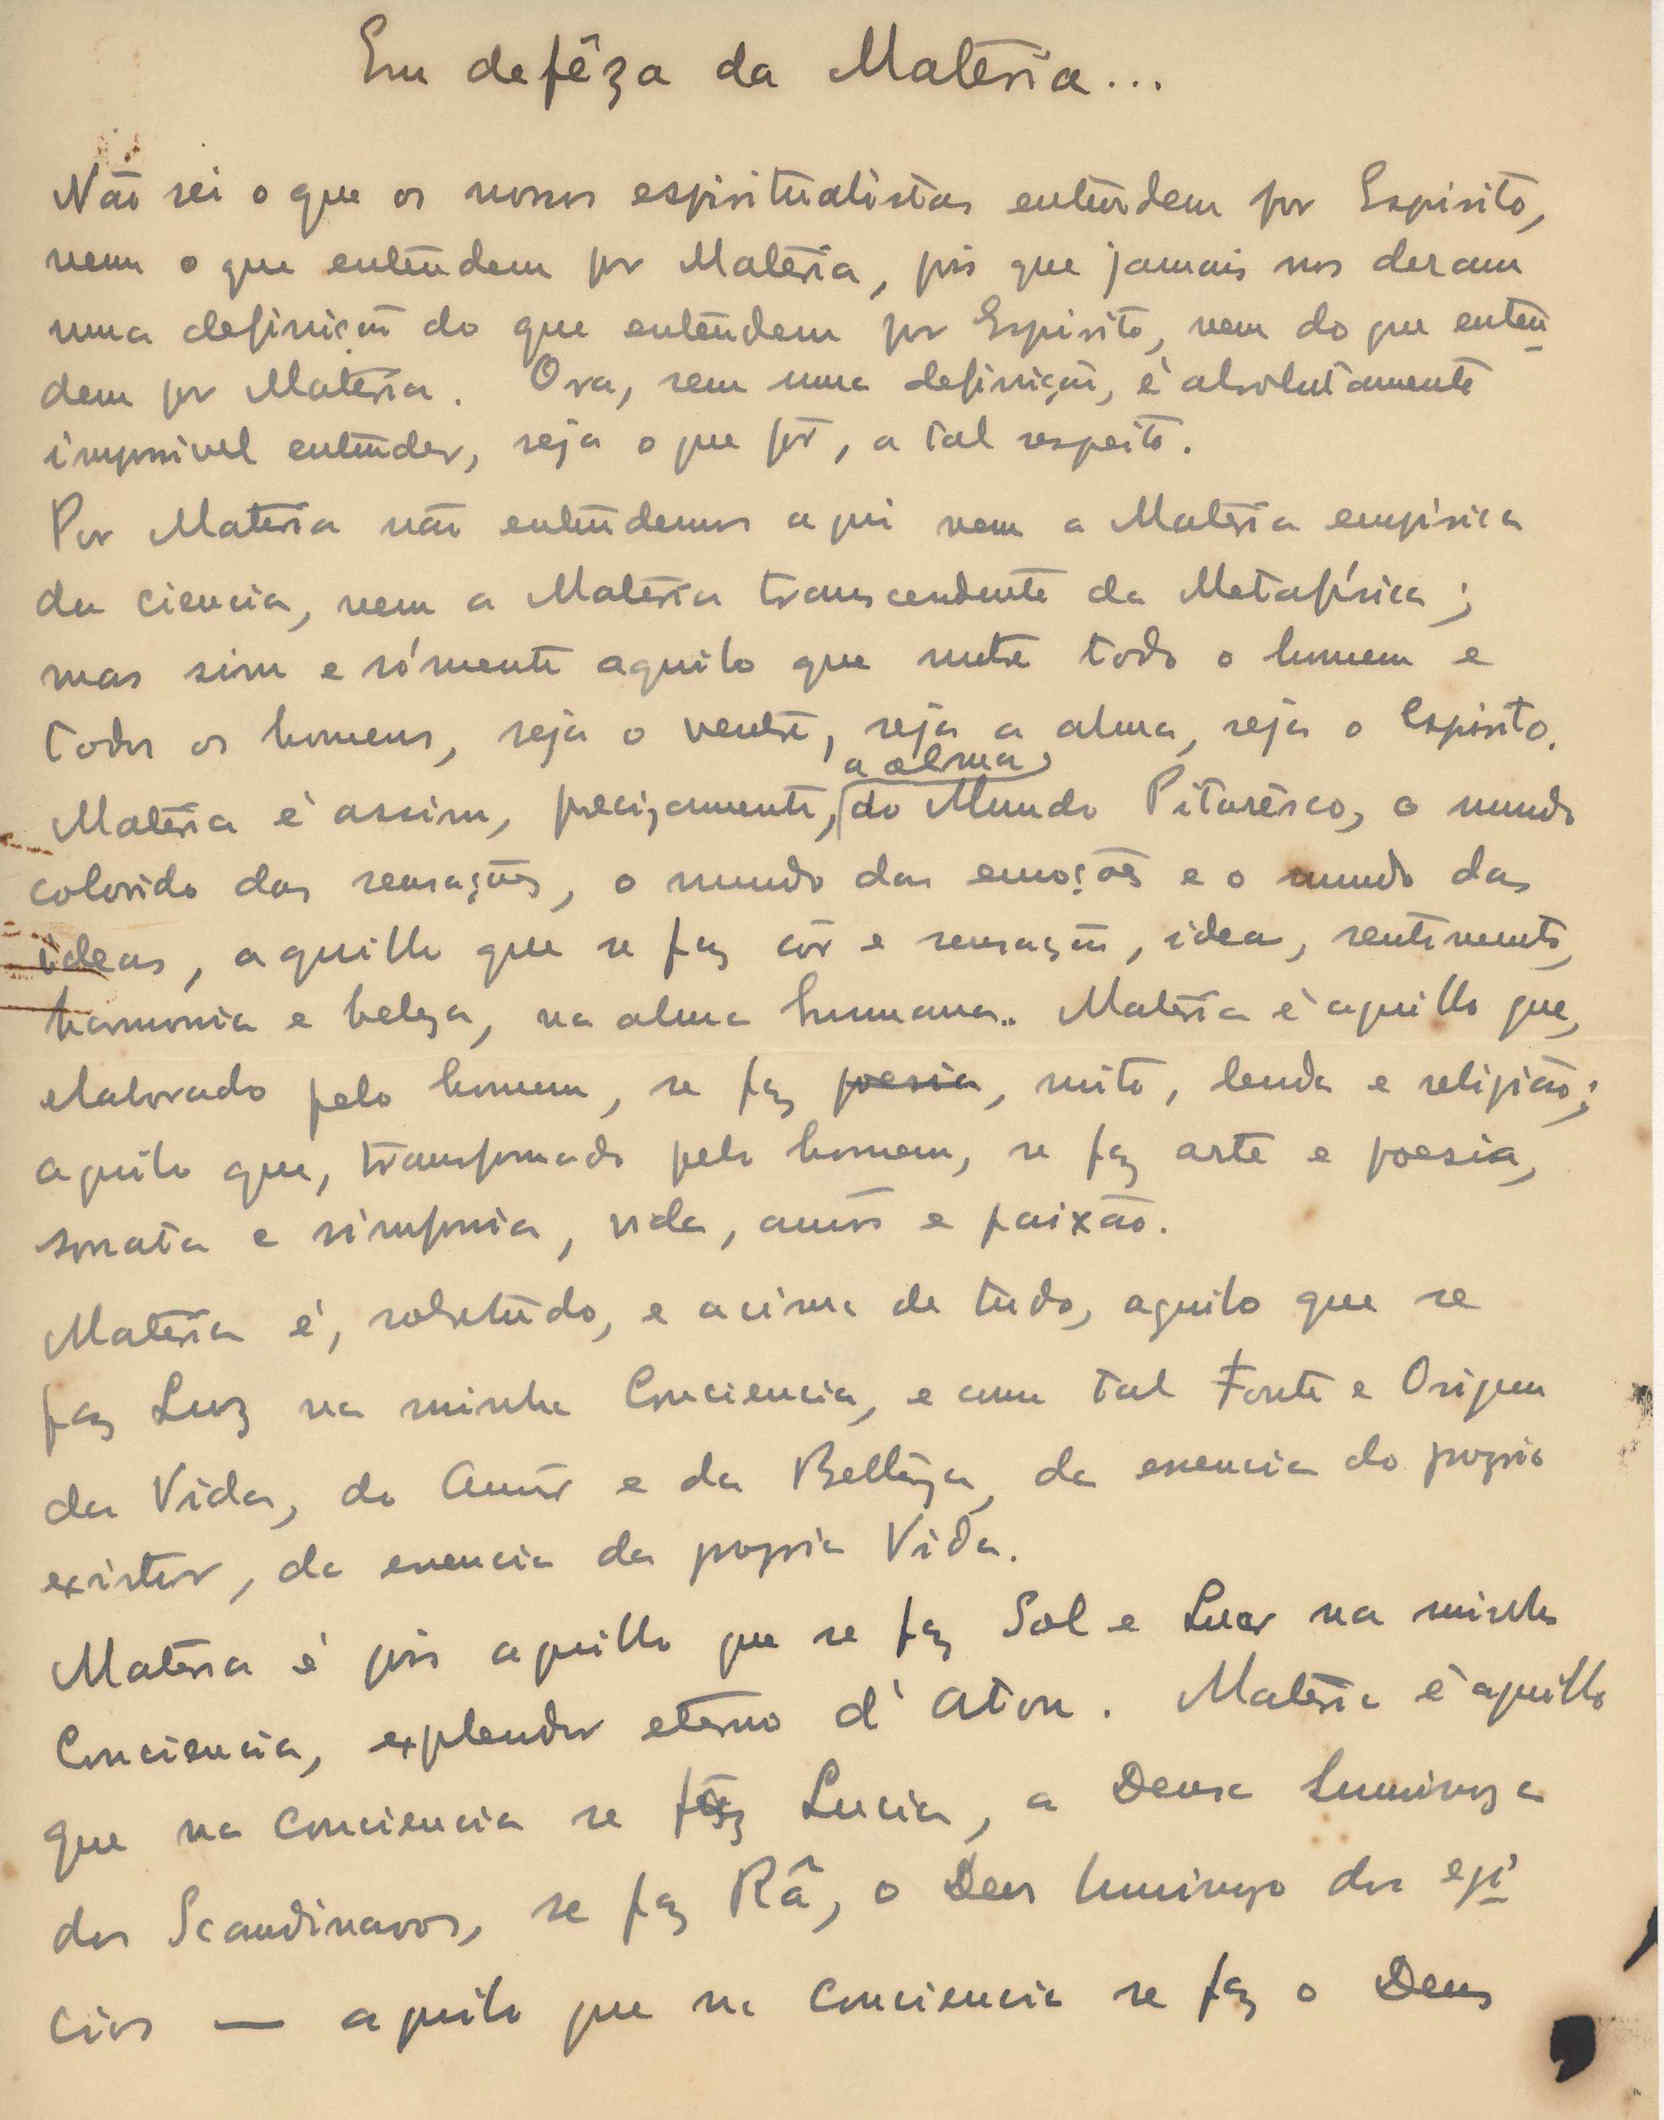 Em defêza da Materia...
Não sei o que os nossos espiritualistas entendem por Espirito,
nem o que entendem por Materia, pois que jamais nos deram
uma definição do que entendem por Espirito, nem do que enten
dem por Materia. Ora, sem uma definição, é absolutamente
impossivel entender, seja o que fôr, a tal respeito.
Por Materia não entendemos aqui nem a Materia empirica
da ciencia, nem a Materia transcendente da Metafísica;
mas sim e sómente aquilo que nutre todo o homem e
todos os homens, seja o ventre, seja a alma, seja o Espirito.
a alma,
Materia é assim, precizamente, do Mundo Piturêsco, o mundo
colorido das sensações, o mundo das emoções e o mundo das
ideas, aquillo que se faz côr e sensação, idea, sentimento,
harmonia e beleza, na alma humana.. Materia é aquillo que,
elaborado pelo homem, se faz poesia, mito, lenda e religião;
aquilo que, transformado pelo homem, se faz arte e poesia,
sonata e simfonia, vida, amôr e paixão.
Materia é, sobretudo, e acima de tudo, aquilo que se
faz Luz na minha Conciencia, e como tal Fonte e Origem
da Vida, do Amôr e da Bellêza, da essencia do proprio
existir, da essencia da propria Vida.
Materia é pois aquillo que se faz Sol e Luar na minha
Conciencia, explendor eterno d'Aton. Materia é aquillo
que na conciencia se faz Lucia, a Deusa luminoza
dos Scandinavos, se faz Râ, o Deus luminozo dos egí
cios — aquilo que na conciencia se faz o Deus